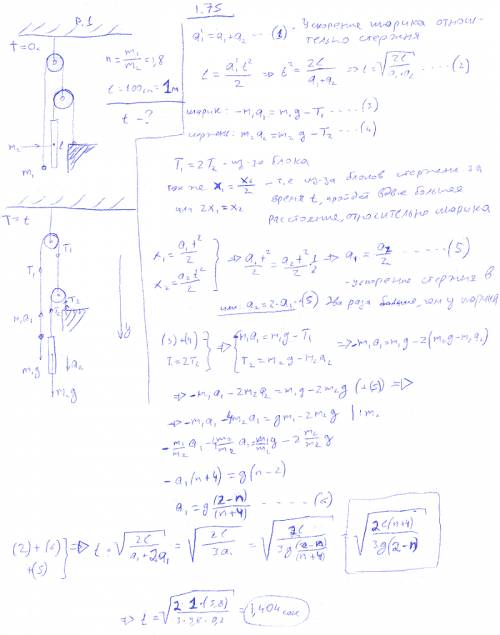 P.1
1.75
T=0.
n = m₁/m₂ = 1,8
ℓ = 100см = 1м
t - ?
m₂
ℓ
m₁
a' = a₁ + a₂ ... (1) - Ускорение шарика относительно стержня
ℓ = a'₁t²/2 ⇒ t² = 2ℓ/(a₁+a₂) ⇒ t = √(2ℓ/(a₁+a₂)) ..... (2)
шарик: -m₁a₁ = m₁g - T₁ ..... (3)
стержень: m₂a₂ = m₂g - T₂ .... (4)
T₁ = 2T₂ - из-за блока
так же x₁ = x₂/2 - т.е из-за блоков стержень за
время t, пройдет вдвое большее
или 2x₁ = x₂
расстояние, относительно шарика
T = t
T₁
T₁
T₂
T₂
m₁a₁
m₁g
a₂
m₂g
y
x₁ = a₁t²/2
x₂ = a₂t²/2
} ⇒ a₁t²/2 = a₂t²/2 · 1/2 ⇒ a₁ = a₂/2 ..... (5)
- ускорение стержня в
или: a₂ = 2·a₁ ··(5) два раза больше, чем у шарика
(3)+(4)
T = 2T₂
} ⇒ { -m₁a₁ = m₁g - T₁
T₂ = m₂g - m₂a₂
⇒ -m₁a₁ = m₁g - 2(m₂g - m₂a₂)
⇒ -m₁a₁ - 2m₂a₂ = m₁g - 2m₂g (+(5)) ⇒
⇒ -m₁a₁ - 4m₂a₁ = gm₁ - 2m₂g |:m₂
-m₁/m₂ a₁ - 4m₂/m₂ a₁ = m₁/m₂ g - 2 m₂/m₂ g
-a₁(n+4) = g(n-2)
a₁ = g (2-n)/(n+4) ..... (6)
(2)+(6)
+(5)
} ⇒ t = √(2ℓ/(a₁+2a₁)) = √(2ℓ/3a₁) = √(2ℓ/(3g(2-n)/(n+4))) = √(2ℓ(n+4)/(3g(2-n)))
⇒ t = √(2·1·(5,8)/(3·9,8·0,2)) = 1,404 сек